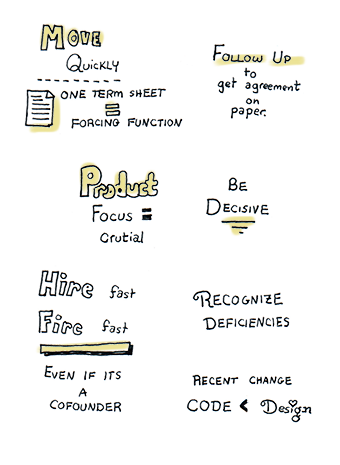 MOVE
QUICKLY
ONE TERM SHEET
=
FORCING FUNCTION
FOLLOW UP
to
get agreement
on
paper.
Product
Focus =
Crutial
BE
DECISIVE
Hire fast
Fire fast
EVEN IF ITS
A
COFOUNDER
RECOGNIZE
DEFICIENCIES
RECENT CHANGE
CODE < Design